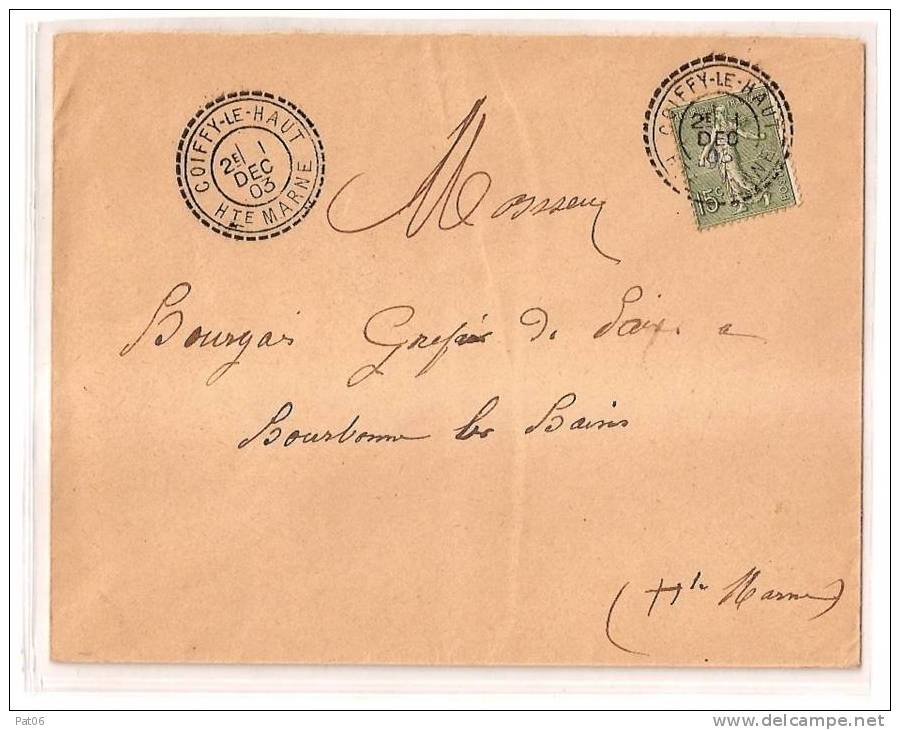 COIFFY-LE-HAUT
2E 1
DEC
03
HTE MARNE
COIFFY-LE-HAUT
2E 1
DEC
03
15c
Monsieur
Bourgais Greffier de Paix a
Bourbonne les Bains
(Hte Marne)
Pat06
www.delcampe.net